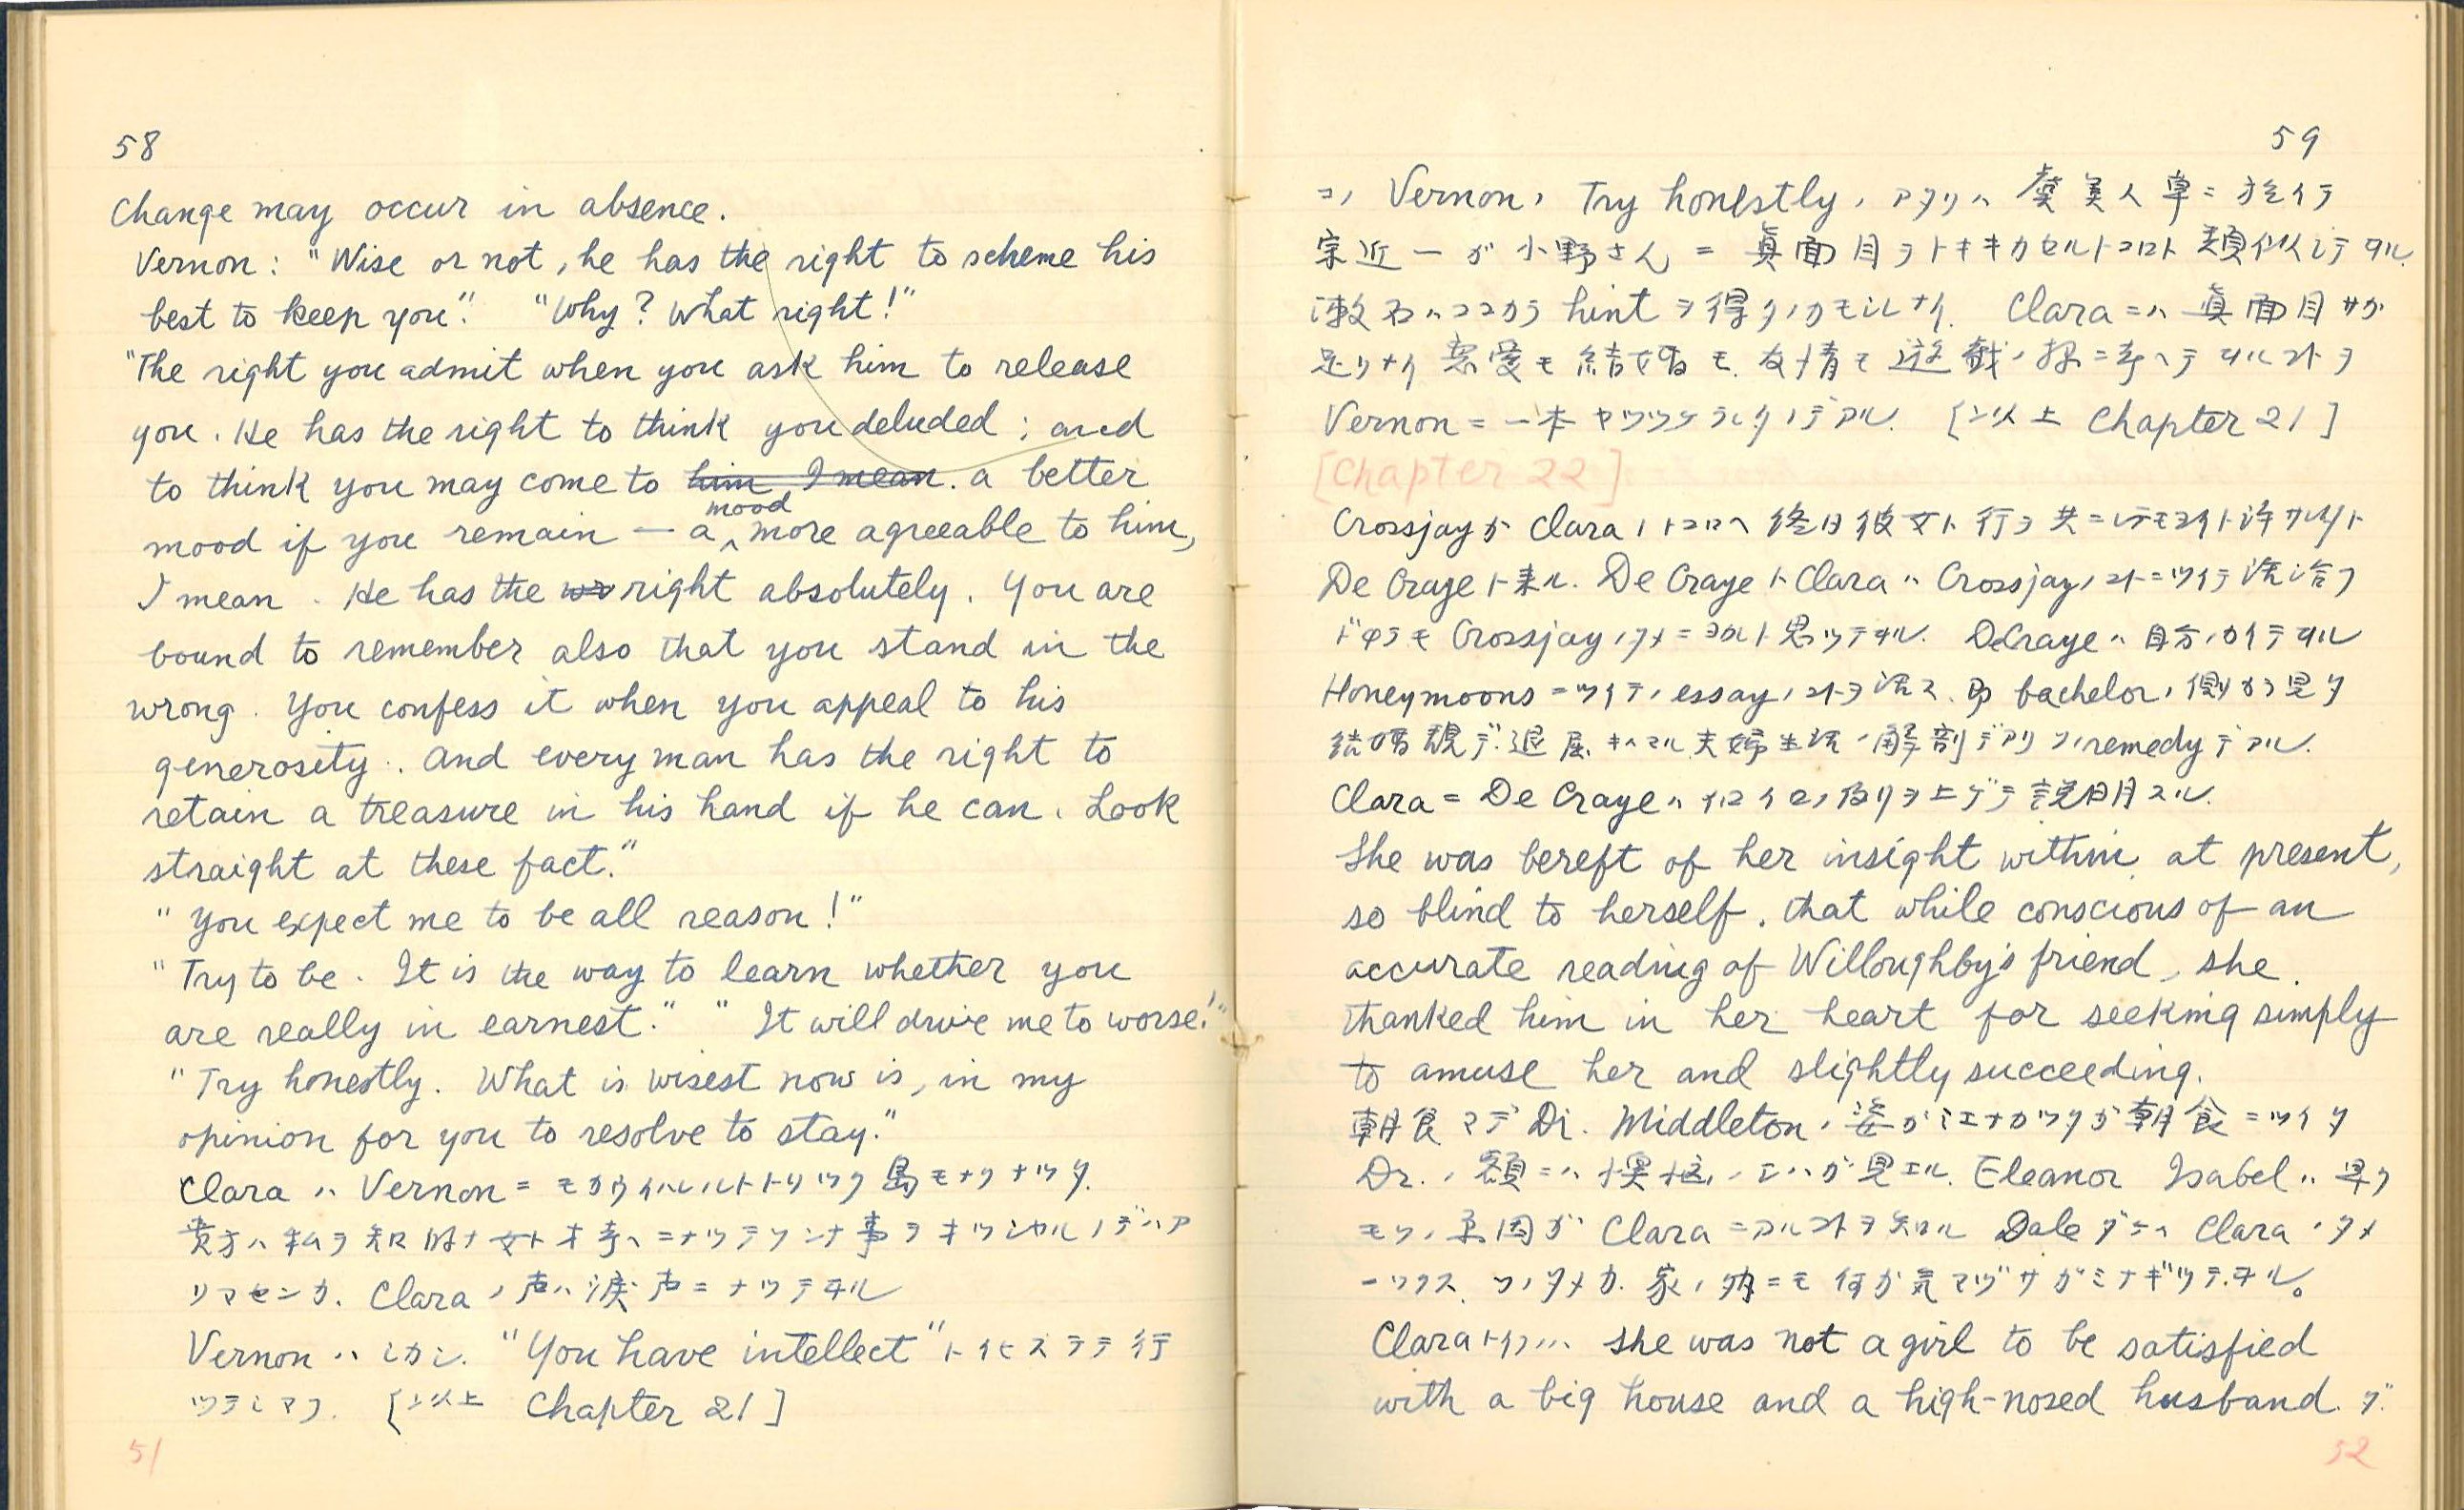 58
Change may occur in absence.
Vernon: "Wise or not, he has the right to scheme his
best to keep you". "Why? What right!"
"The right you admit when you ask him to release
you. He has the right to think you deluded ; and
to think you may come to him I mean. a better
mood if you remain — a mood more agreeable to him,
I mean. He has the right absolutely. You are
bound to remember also that you stand in the
wrong. You confess it when you appeal to his
generosity. And every man has the right to
retain a treasure in his hand if he can. Look
straight at these fact."
"You expect me to be all reason!"
"Try to be. It is the way to learn whether you
are really in earnest." "It will drive me to worse!"
"Try honestly. What is wisest now is, in my
opinion for you to resolve to stay."
Clara ハ Vernon ニ 島モナクナツタ.
貴方ハ私ヲ知的ナ女トオ考ヘニナツテソンナ事ヲオツシヤルノデハア
リマセンカ. Clara ノ声ハ涙声ニナツテヰル
Vernon ハ シカシ. "You have intellect" ト云ヒステテ行
ツテシマフ. [以上 Chapter 21]
51
59
コノ Vernon ノ Try honestly ノアタリハ 虞美人草ニ於イテ
宗近一ガ小野さんニ眞面目ヲトキキカセルトコロト類似シテヰル.
漱石ハココカラ hint ヲ得タノカモシレナイ. Clara ニハ眞面目サガ
足リナイ 恋愛モ結婚モ友情モ遊戯ノ様ニ考ヘテヰルコトヲ
Vernon ニ一本ヤツツケラレタノデアル. [以上 Chapter 21]
[Chapter 22]
Crossjay ガ Clara ノトコロヘ 終日彼女ト行ヲ共ニシテモヨイト許サレタト
De Craye ト来ル. De Craye ト Clara ハ Crossjay ノコトニツイテ話合フ
ドチラモ Crossjay ノタメニヨカレト思ツテヰル. De Craye ハ自分ノカイテヰル
Honeymoons ニツイテノ essay ノコトヲ話ス. 即 bachelor ノ側カラ見タ
結婚観デ退屈キハマル夫婦生活ノ解剖デアリソノ remedy デアル.
Clara ニ De Craye ハイロイロノ例ヲ上ゲテ説明スル.
She was bereft of her insight within at present,
so blind to herself, that while conscious of an
accurate reading of Willoughby's friend, she
thanked him in her heart for seeking simply
to amuse her and slightly succeeding.
朝食マデ Dr. Middleton ノ姿ガミエナカツタガ朝食ニツイタ
Dr. ノ額ニハ ガ見エル. Eleanor Isabel ハ早ク
モソノ原因ガ Clara ニアルコトヲ知ル Dale ダケハ Clara ノタメ
ソノタメカ 家ノ内ニモ何カ気マヅサガミナギツテヰル。
Clara トイフハ she was not a girl to be satisfied
with a big house and a high-nosed husband ダ.
52